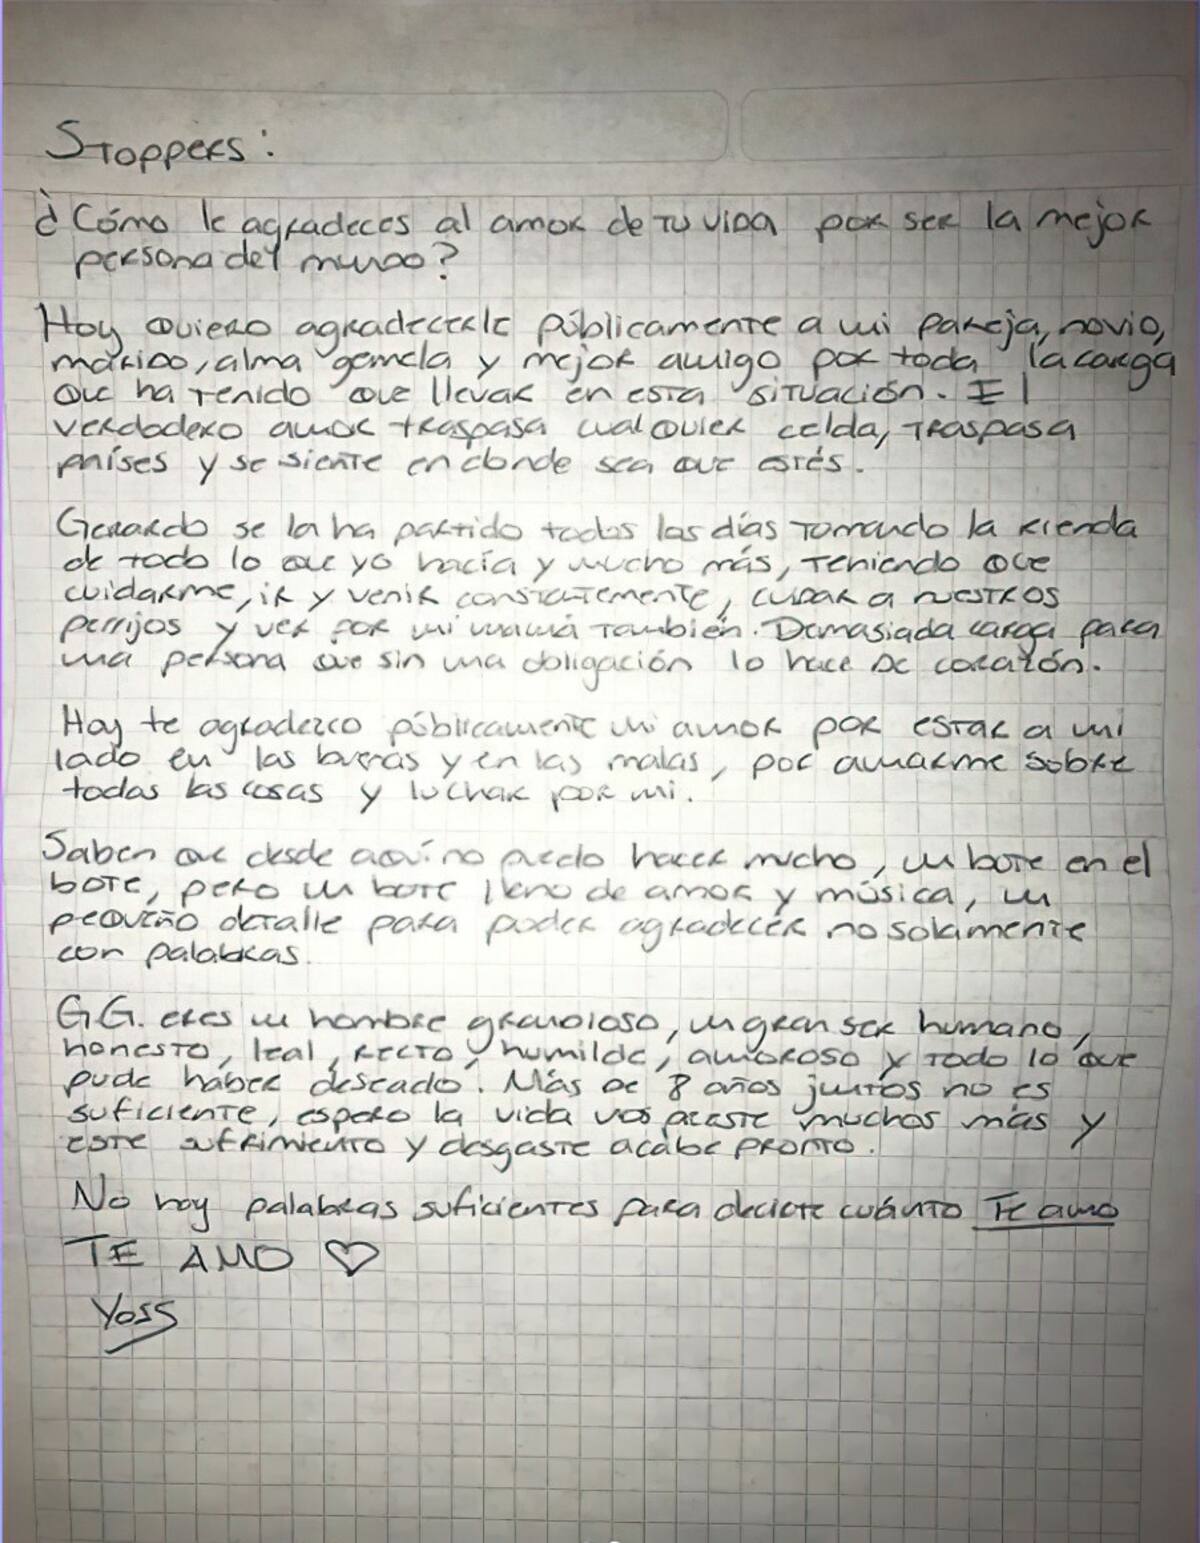 Stoppers:
¿Cómo le agradeces al amor de tu vida por ser la mejor
persona del mundo?
Hoy quiero agradecerle públicamente a mi pareja, novio,
marido, alma gemela y mejor amigo por toda la carga
que ha tenido que llevar en esta situación. El
verdadero amor traspasa cualquier celda, traspasa
países y se siente en donde sea que estés.
Gerardo se la ha partido todos los días tomando la rienda
de todo lo que yo hacía y mucho más, teniendo que
cuidarme, ir y venir constatemente, cuidar a nuestros
perrijos y ver por mi mamá también. Demasiada carga para
una persona que sin una obligación lo hace de corazón.
Hoy te agradezco públicamente mi amor por estar a mi
lado en las buenas y en las malas, por amarme sobre
todas las cosas y luchar por mi.
Saben que desde aquí no puedo hacer mucho, un bote en el
bote, pero un bote lleno de amor y música, un
pequeño detalle para poder agradecer no solamente
con palabras.
G.G. eres un hombre grandioso, un gran ser humano,
honesto, leal, recto, humilde, amoroso y todo lo que
pude haber deseado. Más de 8 años juntos no es
suficiente, espero la vida nos preste muchos más y
este sufrimiento y desgaste acabe pronto.
No hay palabras suficientes para decirte cuánto Te amo
TE AMO ♡
Yoss